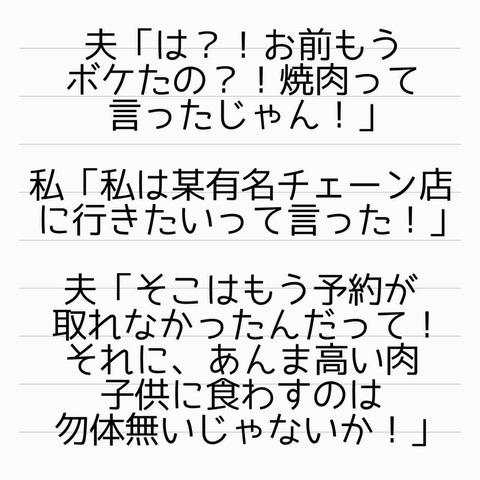 夫「は？！お前もう
ボケたの？！焼肉って
言ったじゃん！」
私「私は某有名チェーン店
に行きたいって言った！」
夫「そこはもう予約が
取れなかったんだって！
それに、あんま高い肉
子供に食わすのは
勿体無いじゃないか！」